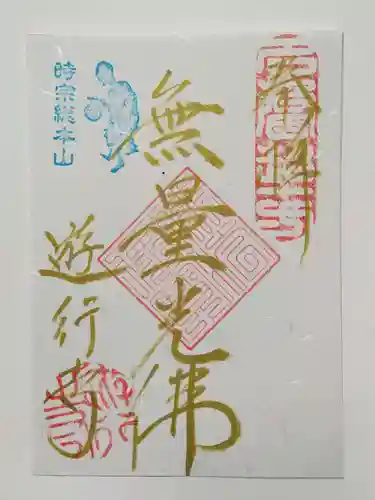 奉拝
無量光佛
時宗総本山
遊行寺